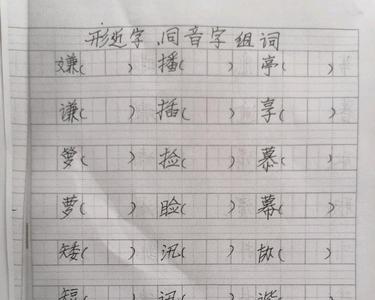 形近字、同音字组词
嫌(　) 播(　) 亭(　)
谦(　) 插(　) 享(　)
箩(　) 捡(　) 慕(　)
萝(　) 睑(　) 幕(　)
矮(　) 汛(　) 协(　)
短(　) 讯(　) 谐(　)